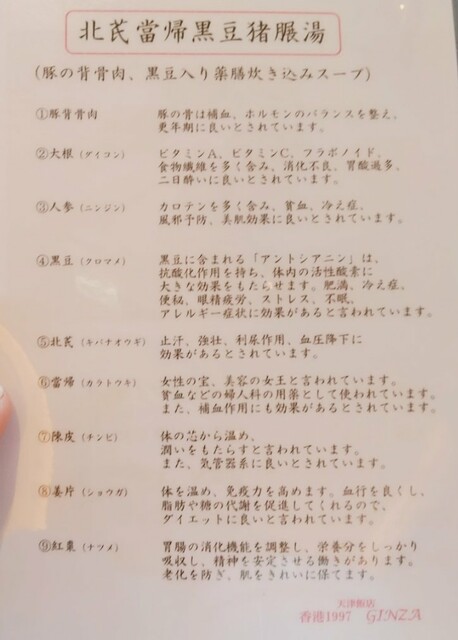 北芪當帰黒豆猪脹湯
(豚の背骨肉、黒豆入り薬膳炊き込みスープ)
①豚背骨肉 豚の骨は補血、ホルモンのバランスを整え、
更年期に良いとされています。
②大根(ダイコン) ビタミンA、ビタミンC、フラボノイド、
食物繊維を多く含み、消化不良、胃酸過多、
二日酔いに良いとされています。
③人参(ニンジン) カロテンを多く含み、貧血、冷え症、
風邪予防、美肌効果に良いとされています。
④黒豆(クロマメ) 黒豆に含まれる「アントシアニン」は、
抗酸化作用を持ち、体内の活性酸素に
大きな効果をもたらせます。肥満、冷え症、
便秘、眼精疲労、ストレス、不眠、
アレルギー症状に効果があると言われています。
⑤北芪(キバナオウギ) 止汗、強壮、利尿作用、血圧降下に
効果があるとされています。
⑥當帰(カラトウキ) 女性の宝、美容の女王と言われています。
貧血などの婦人科の用薬として使われています。
また、補血作用にも効果があるとされています。
⑦陳皮(チンピ) 体の芯から温め、
潤いをもたらすと言われています。
また、気管器系に良いとされています。
⑧姜片(ショウガ) 体を温め、免疫力を高めます。血行を良くし、
脂肪や糖の代謝を促進してくれるので、
ダイエットに良いと言われています。
⑨紅棗(ナツメ) 胃腸の消化機能を調整し、栄養分をしっかり
吸収し、精神を安定させる働きがあります。
老化を防ぎ、肌をきれいに保てます。
天津飯店
香港1997 GINZA